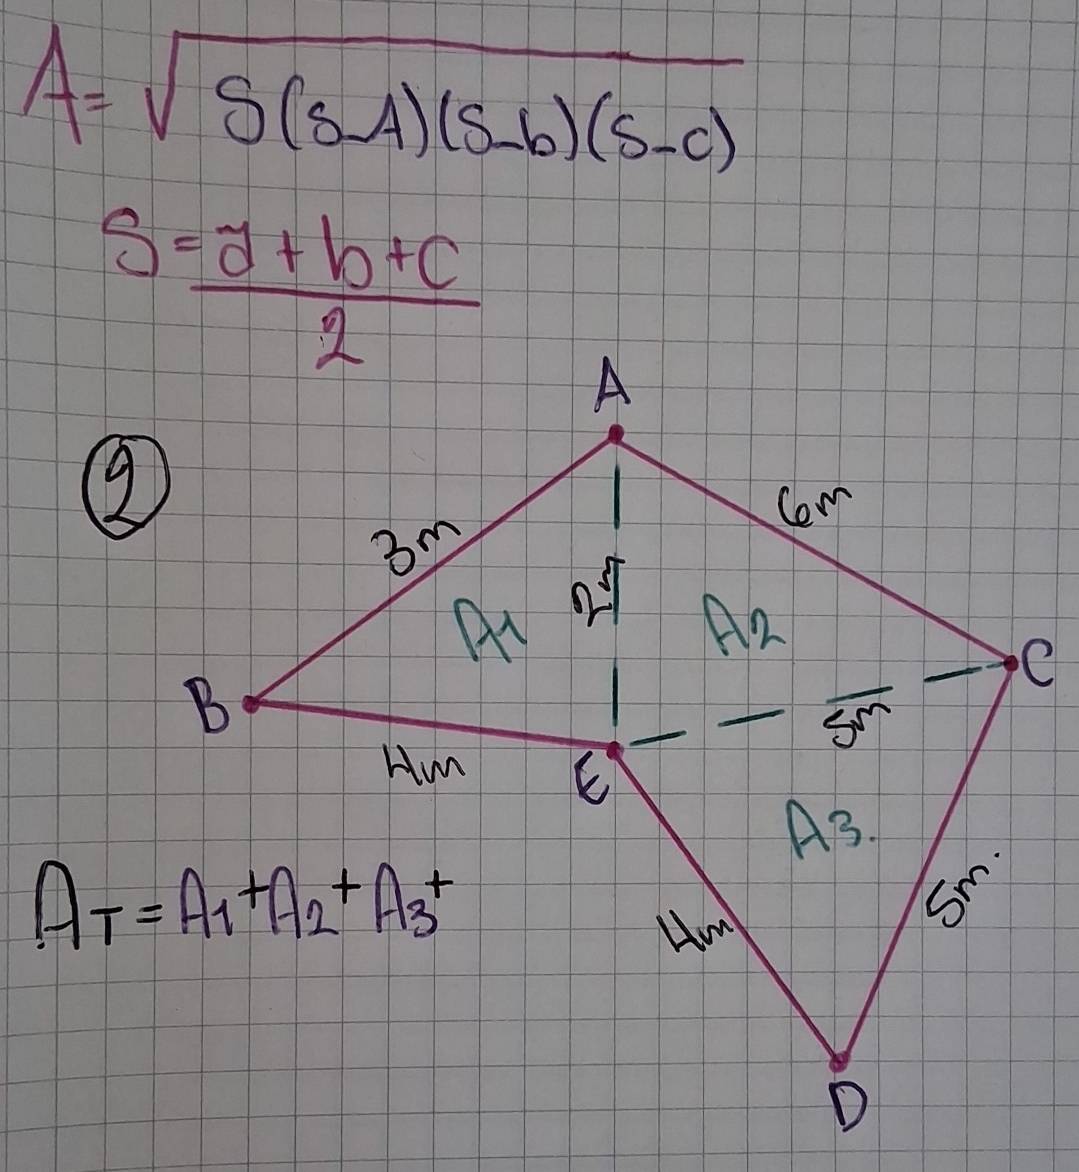 A=√S(S-A)(S-b)(S-c)
S=a+b+c
2
A
2
6m
3m
2m
A1
A2
C
B
5m
4m
E
A3.
AT=A1+A2+A3+
5m.
4m
D